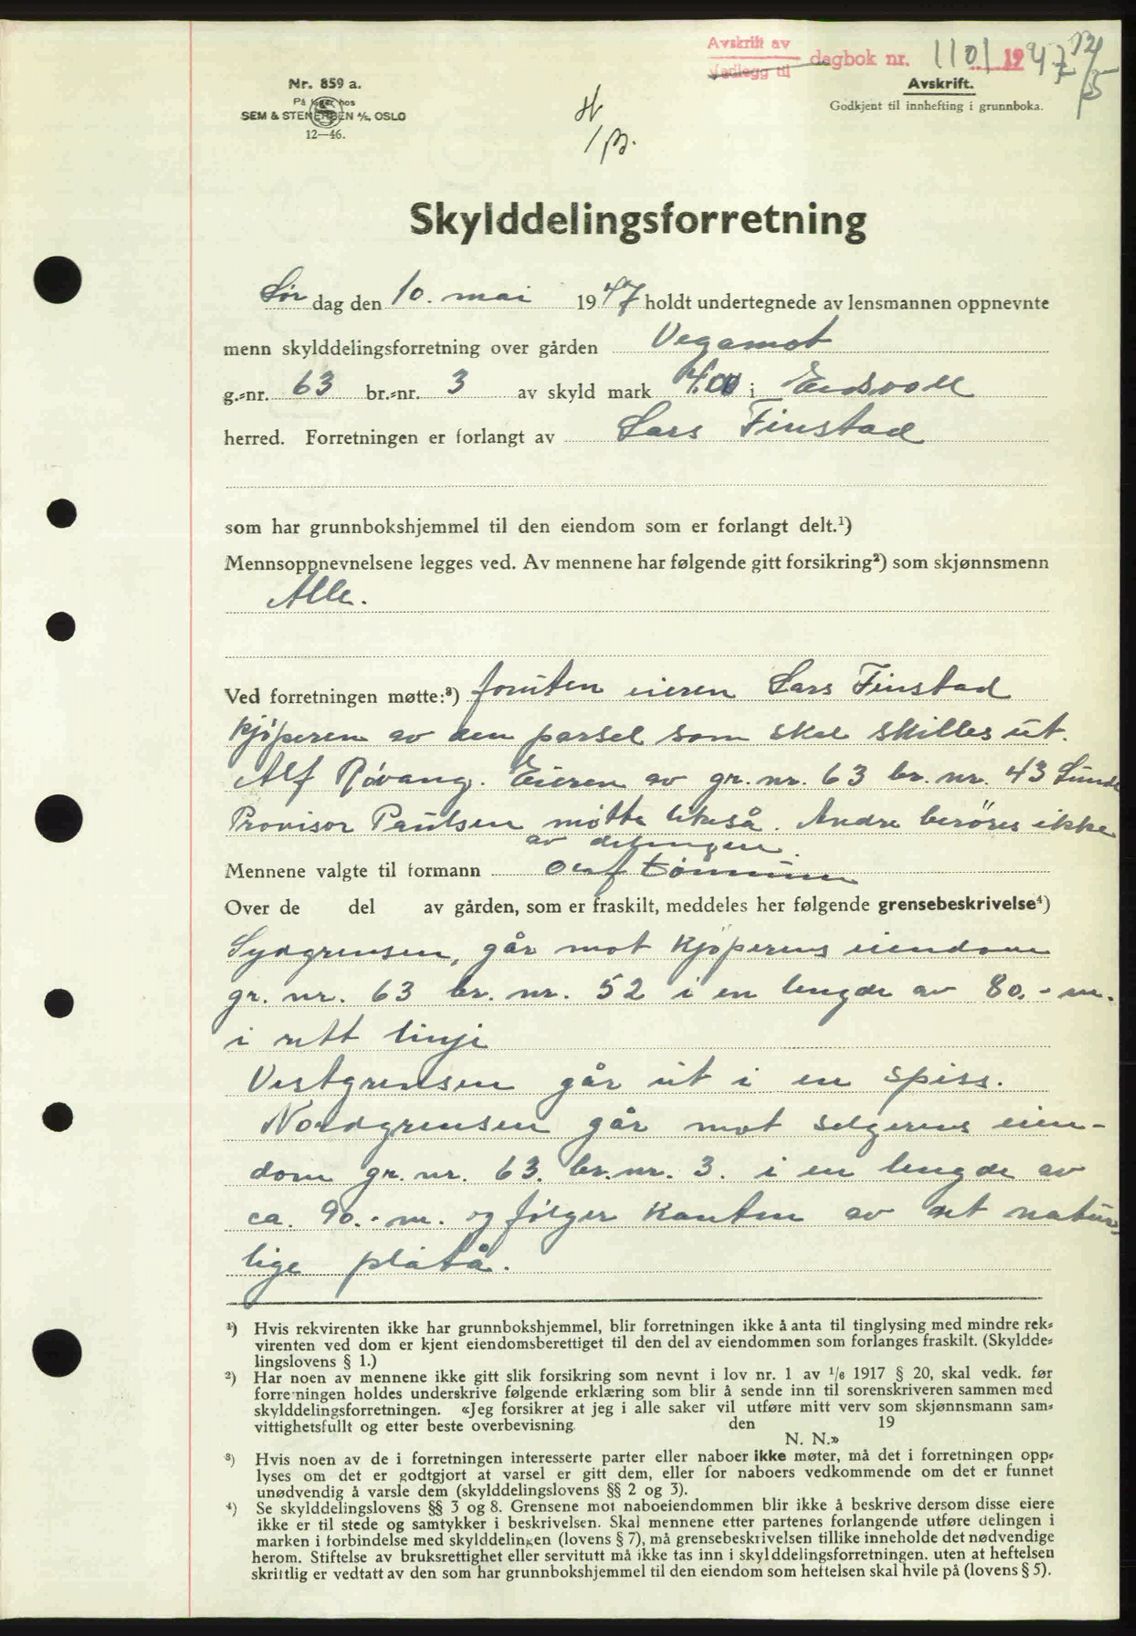 Avskrift av
Vedlegg til dagbok nr. 1101 1947 12/5
Nr. 859 a.
På lager hos
SEM & STENERSEN A/S, OSLO
12—46.
Avskrift.
Godkjent til innhefting i grunnboka.
Skylddelingsforretning
Lør dag den 10. mai 1947 holdt undertegnede av lensmannen oppnevnte
menn skylddelingsforretning over gården Vegamot
g.-nr. 63 br.-nr. 3 av skyld mark i Eidsvoll
herred. Forretningen er forlangt av Lars Finstad
som har grunnbokshjemmel til den eiendom som er forlangt delt.¹)
Mennsoppnevnelsene legges ved. Av mennene har følgende gitt forsikring²) som skjønnsmenn
Alle.
Ved forretningen møtte:³) foruten eieren Lars Finstad
kjøperen av den parsel som skal skilles ut.
Alf Røvang. Eieren av gr. nr. 63 br. nr. 43 Lunde
Provisor Paulsen møtte likeså. Andre berøres ikke
av delingen.
Mennene valgte til formann Olaf
Over de del av gården, som er fraskilt, meddeles her følgende grensebeskrivelse⁴)
Sydgrensen, går mot kjøperens eiendom
gr. nr. 63 br. nr. 52 i en lengde av 80.- m.
i rett linje
Vestgrensen går ut i en spiss.
Nordgrensen går mot selgerens eien-
dom gr. nr. 63. br. nr. 3. i en lengde av
ca. 90.- m. og følger kanten av et natur
lige platå.
¹) Hvis rekvirenten ikke har grunnbokshjemmel, blir forretningen ikke å anta til tinglysing med mindre rek-
virenten ved dom er kjent eiendomsberettiget til den del av eiendommen som forlanges fraskilt. (Skyldde-
lingslovens § 1.)
²) Har noen av mennene ikke gitt slik forsikring som nevnt i lov nr. 1 av 1/6 1917 § 20, skal vedk. før
forretningen holdes underskrive følgende erklæring som blir å sende inn til sorenskriveren sammen med
skylddelingsforretningen. «Jeg forsikrer at jeg i alle saker vil utføre mitt verv som skjønnsmann sam-
vittighetsfullt og etter beste overbevisning den 19
N. N.»
³) Hvis noen av de i forretningen interesserte parter eller naboer ikke møter, må det i forretningen opp-
lyses om det er godtgjort at varsel er gitt dem, eller for naboers vedkommende om det er funnet
unødvendig å varsle dem (skylddelingslovens §§ 2 og 3).
⁴) Se skylddelingslovens §§ 3 og 8. Grensene mot naboeiendommen blir ikke å beskrive dersom disse eiere
ikke er til stede og samtykker i beskrivelsen. Skal mennene etter partenes forlangende utføre delingen i
marken i forbindelse med skylddelingen (lovens § 7), må grensebeskrivelsen tillike inneholde det nødvendige
herom. Stiftelse av bruksrettighet eller servitutt må ikke tas inn i skylddelingsforretningen. uten at heftelsen
skriftlig er vedtatt av den som har grunnbokshjemmel til den eiendom som heftelsen skal hvile på (lovens § 5).